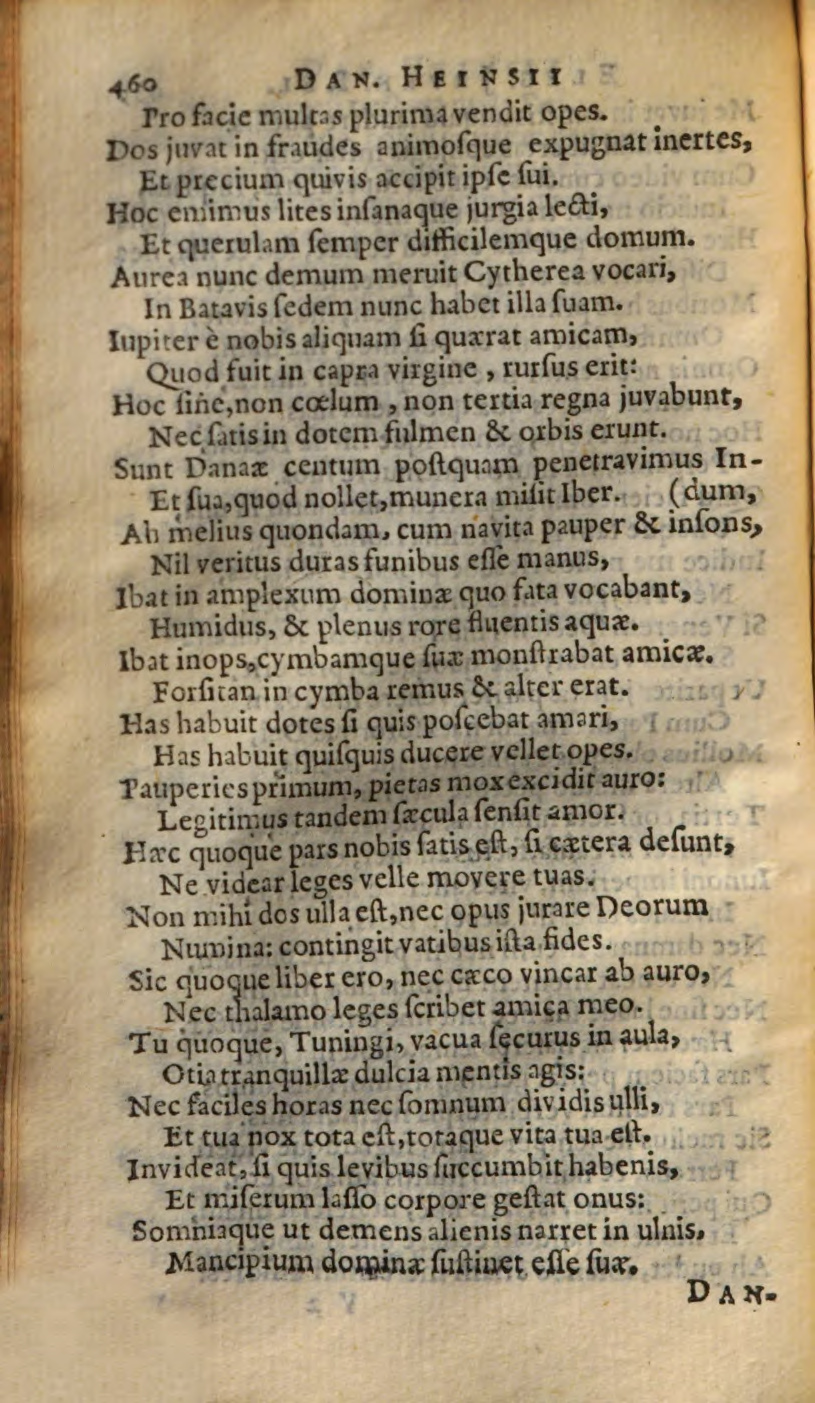 460 DAN. HEINSII
Pro facie multas plurima vendit opes.
Dos juvat in fraudes animoſque expugnat inertes,
Et precium quivis accipit ipſe ſui.
Hoc emimus lites inſanaque jurgia lecti,
Et querulam ſemper difficilemque domum.
Aurea nunc demum meruit Cytherea vocari,
In Batavis ſedem nunc habet illa ſuam.
Iupiter è nobis aliquam ſi quærat amicam,
Quod fuit in capra virgine, rurſus erit:
Hoc ſine, non cœlum, non tertia regna juvabunt,
Nec ſatis in dotem fulmen & orbis erunt.
Sunt Danaæ centum poſtquam penetravimus In-
Et ſua, quod nollet, munera miſit Iber. (dum,
Ah melius quondam, cum navita pauper & inſons,
Nil veritus duras funibus eſſe manus,
Ibat in amplexum dominæ quo fata vocabant,
Humidus, & plenus rore fluentis aquæ.
Ibat inops, cymbamque ſuæ monſtrabat amicæ.
Forſitan in cymba remus & alter erat.
Has habuit dotes ſi quis poſcebat amari,
Has habuit quiſquis ducere vellet opes.
Pauperies primum, pietas mox excidit auro:
Legitimus tandem ſæcula ſenſit amor.
Hæc quoque pars nobis ſatis eſt, ſi cætera deſunt,
Ne videar leges velle movere tuas.
Non mihi dos ulla eſt, nec opus jurare Deorum
Numina: contingit vatibus iſta fides.
Sic quoque liber ero, nec cæco vincar ab auro,
Nec thalamo leges ſcribet amica meo.
Tu quoque, Tuningi, vacua ſecurus in aula,
Otia tranquillæ dulcia mentis agis:
Nec faciles horas nec ſomnum dividis ulli,
Et tua nox tota eſt, totaque vita tua eſt.
Invideat, ſi quis levibus ſuccumbit habenis,
Et miſerum laſſo corpore geſtat onus:
Somniaque ut demens alienis narret in ulnis,
Mancipium dominæ ſuſtinet eſſe ſuæ.
DAN-